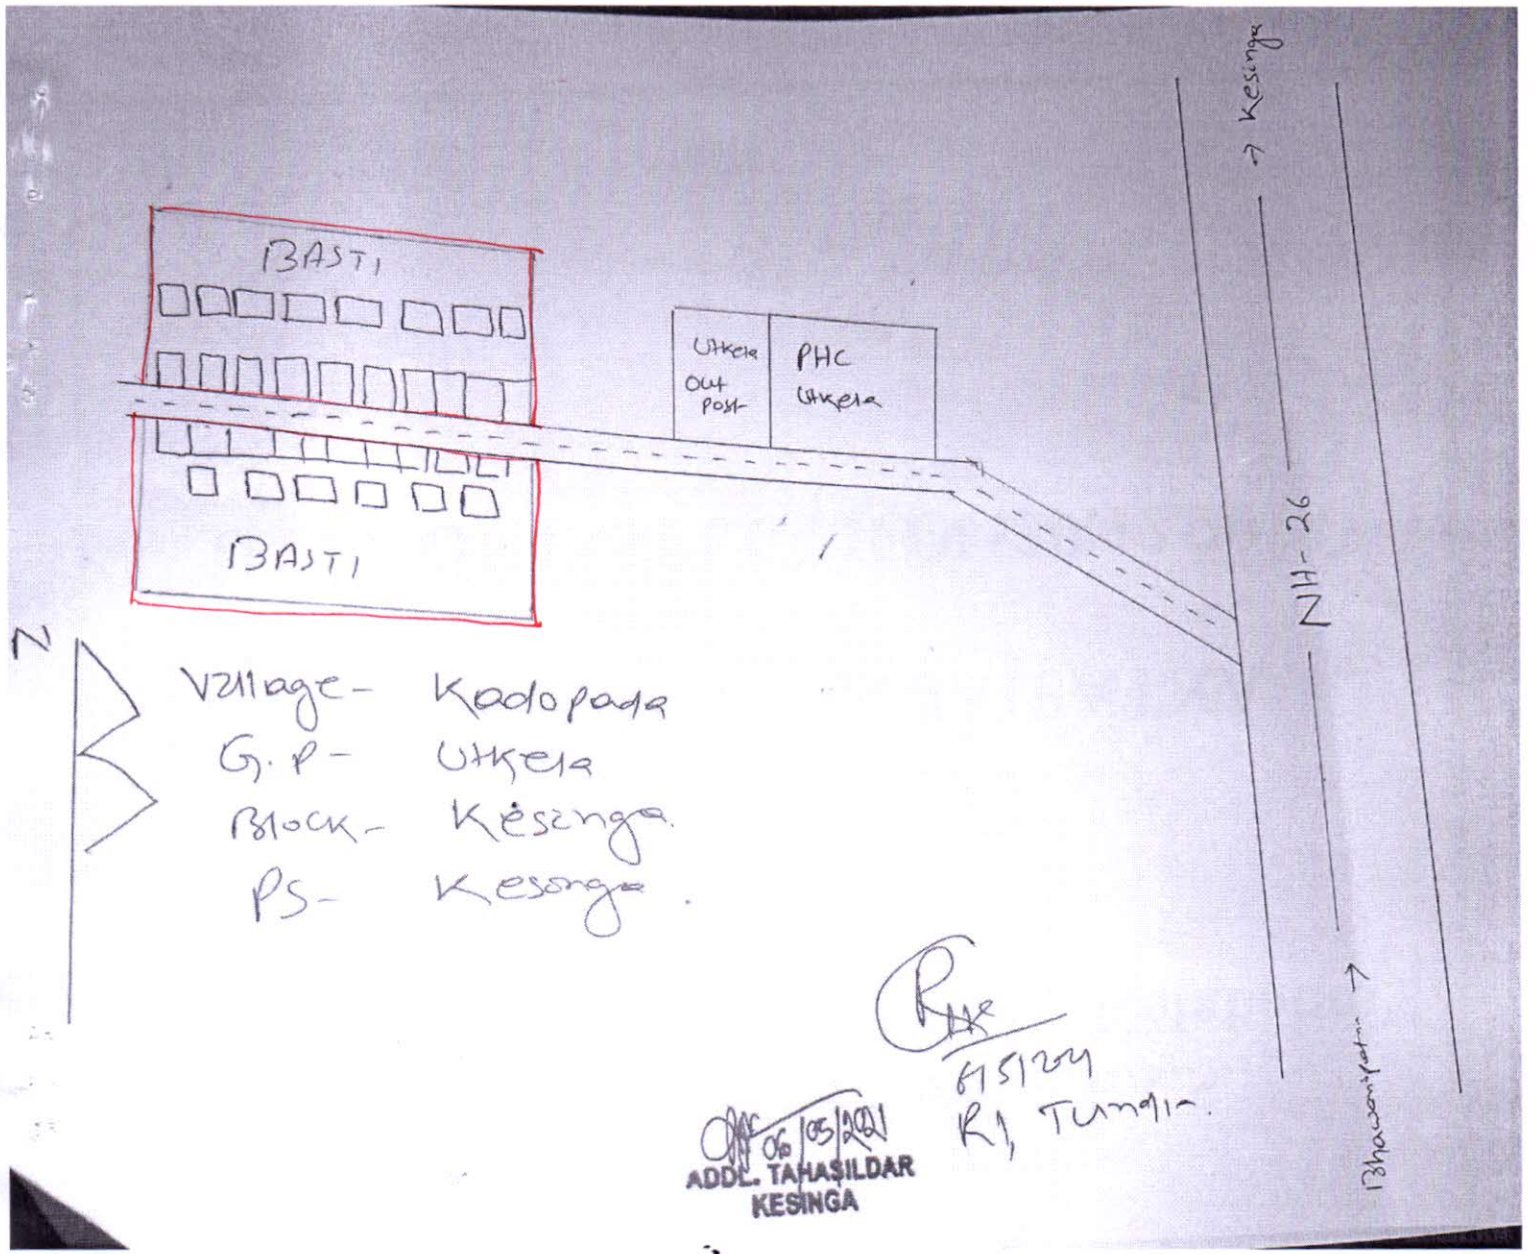 → Kesinga
BASTI
Utkela
Out
Post
PHC
Utkela
NH-26
BASTI
N
Village- Kadopada
G.P- Utkela
Block- Kesinga.
PS- Kesinga.
Bhawanipatna →
6/5/2021
R1, Tundla.
06/05/2021
ADDL. TAHASILDAR
KESINGA